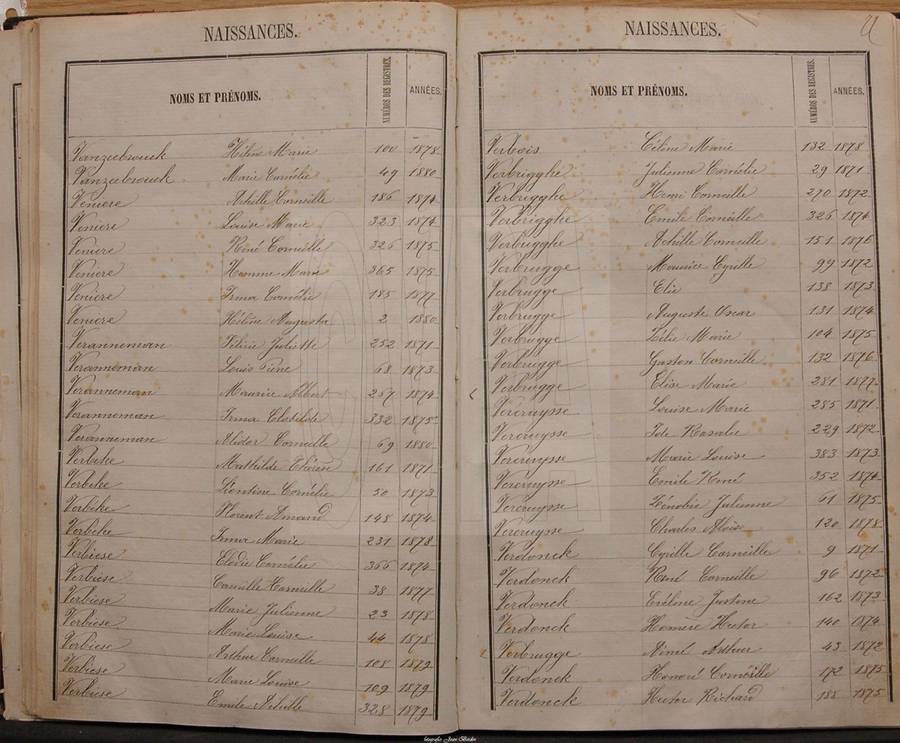 NAISSANCES.
NOMS ET PRÉNOMS. NUMÉROS DES REGISTRES. ANNÉES.
Vanzeebrouck Hélène Marie 100 1878
Vanzeebrouck Marie Cornélie 49 1880
Veniere Achille Corneille 186 1874
Veniere Louise Marie 323 1874
Veniere René Corneille 326 1875
Veniere Marie 365 1875
Veniere Irma Cornélie 185 1877
Veniere Hélène Augusta 2 1880
Veranneman Juliette 252 1871
Veranneman Louis 68 1873
Veranneman Maurice Albert 267 1874
Veranneman Irma Clotilde 332 1875
Veranneman Alidor Corneille 69 1880
Verbeke Mathilde 161 1871
Verbeke Léontine Cornélie 50 1873
Verbeke Florent Amand 148 1874
Verbeke Irma Marie 231 1878
Verbiese Elodie Cornélie 366 1874
Verbiese Camille Corneille 38 1877
Verbiese Marie Julienne 23 1878
Verbiese Marie Louise 44 1878
Verbiese Arthur Corneille 108 1879
Verbiese Marie Louise 109 1879
Verbiese Emile Achille 328 1879
NAISSANCES.
NOMS ET PRÉNOMS. NUMÉROS DES REGISTRES. ANNÉES.
Verbois Céline Marie 132 1878
Verbrigghe Julienne Cornélie 29 1871
Verbrigghe Henri Corneille 270 1872
Verbrigghe Emile Corneille 326 1874
Verbrigghe Achille Corneille 151 1876
Verbrugge Maurice Cyrille 99 1872
Verbrugge Elie 138 1873
Verbrugge Auguste Oscar 131 1874
Verbrugge Zélie Marie 104 1875
Verbrugge Gaston Corneille 132 1876
Verbrugge Elise Marie 281 1877
Vercruysse Louise Marie 285 1871
Vercruysse Rosalie 229 1872
Vercruysse Marie Louise 383 1873
Vercruysse Emile René 352 1874
Vercruysse Zénobie Julienne 61 1875
Vercruysse Charles Aloïse 120 1878
Verdonck Cyrille Corneille 9 1871
Verdonck René Corneille 96 1872
Verdonck Justine 162 1873
Verdonck Homère Hector 140 1874
Verbrugge Aimé Arthur 43 1872
Verdonck Honoré Corneille 172 1875
Verdonck Hector Richard 188 1875